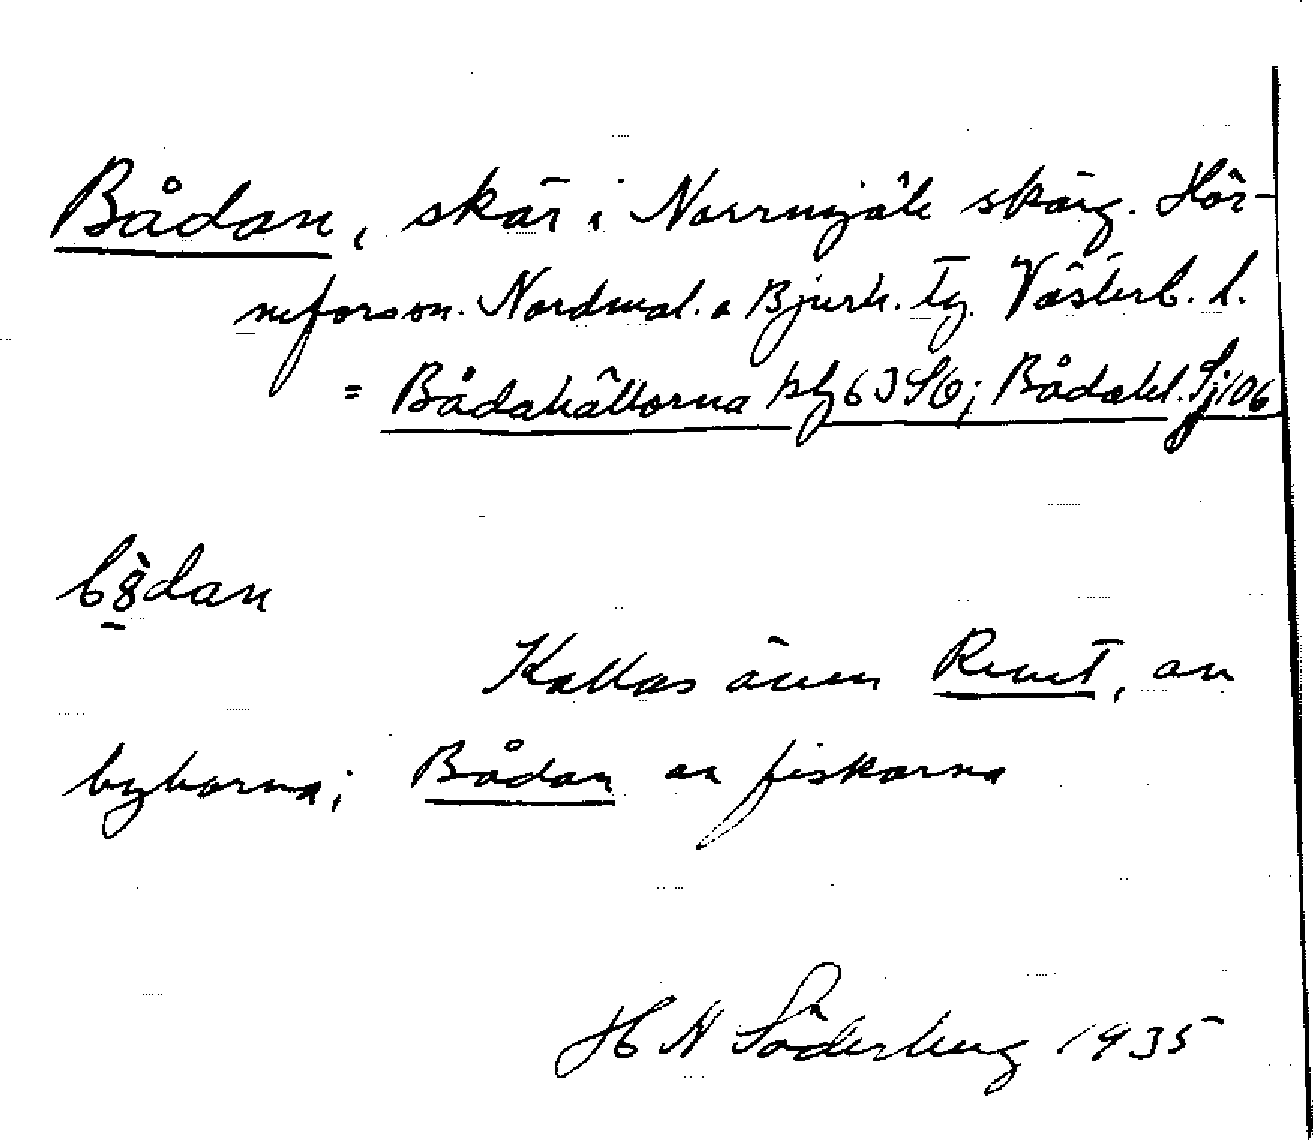 Bådan, skär i Norrmjöle skärg. Hör-
neforssn. Nordmal. o Bjurh. tg. Västerb. l.
= Bådahällorna kbl 63 S6; Bådahl. Sj 106
bådan
Kallas även Revet, av
byborna; Bådan av fiskarna
H N Söderberg 1935